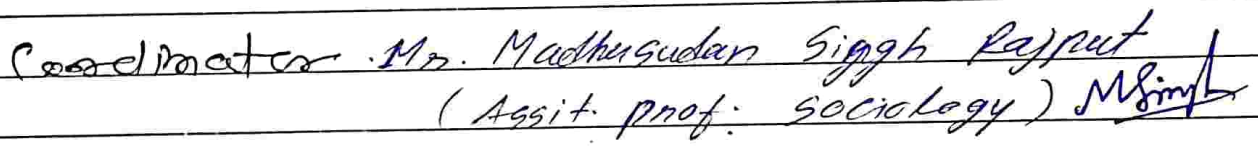 Coordinator. Mr. Madhusudan Singh Rajput
(Assit. prof. sociology) MSingh